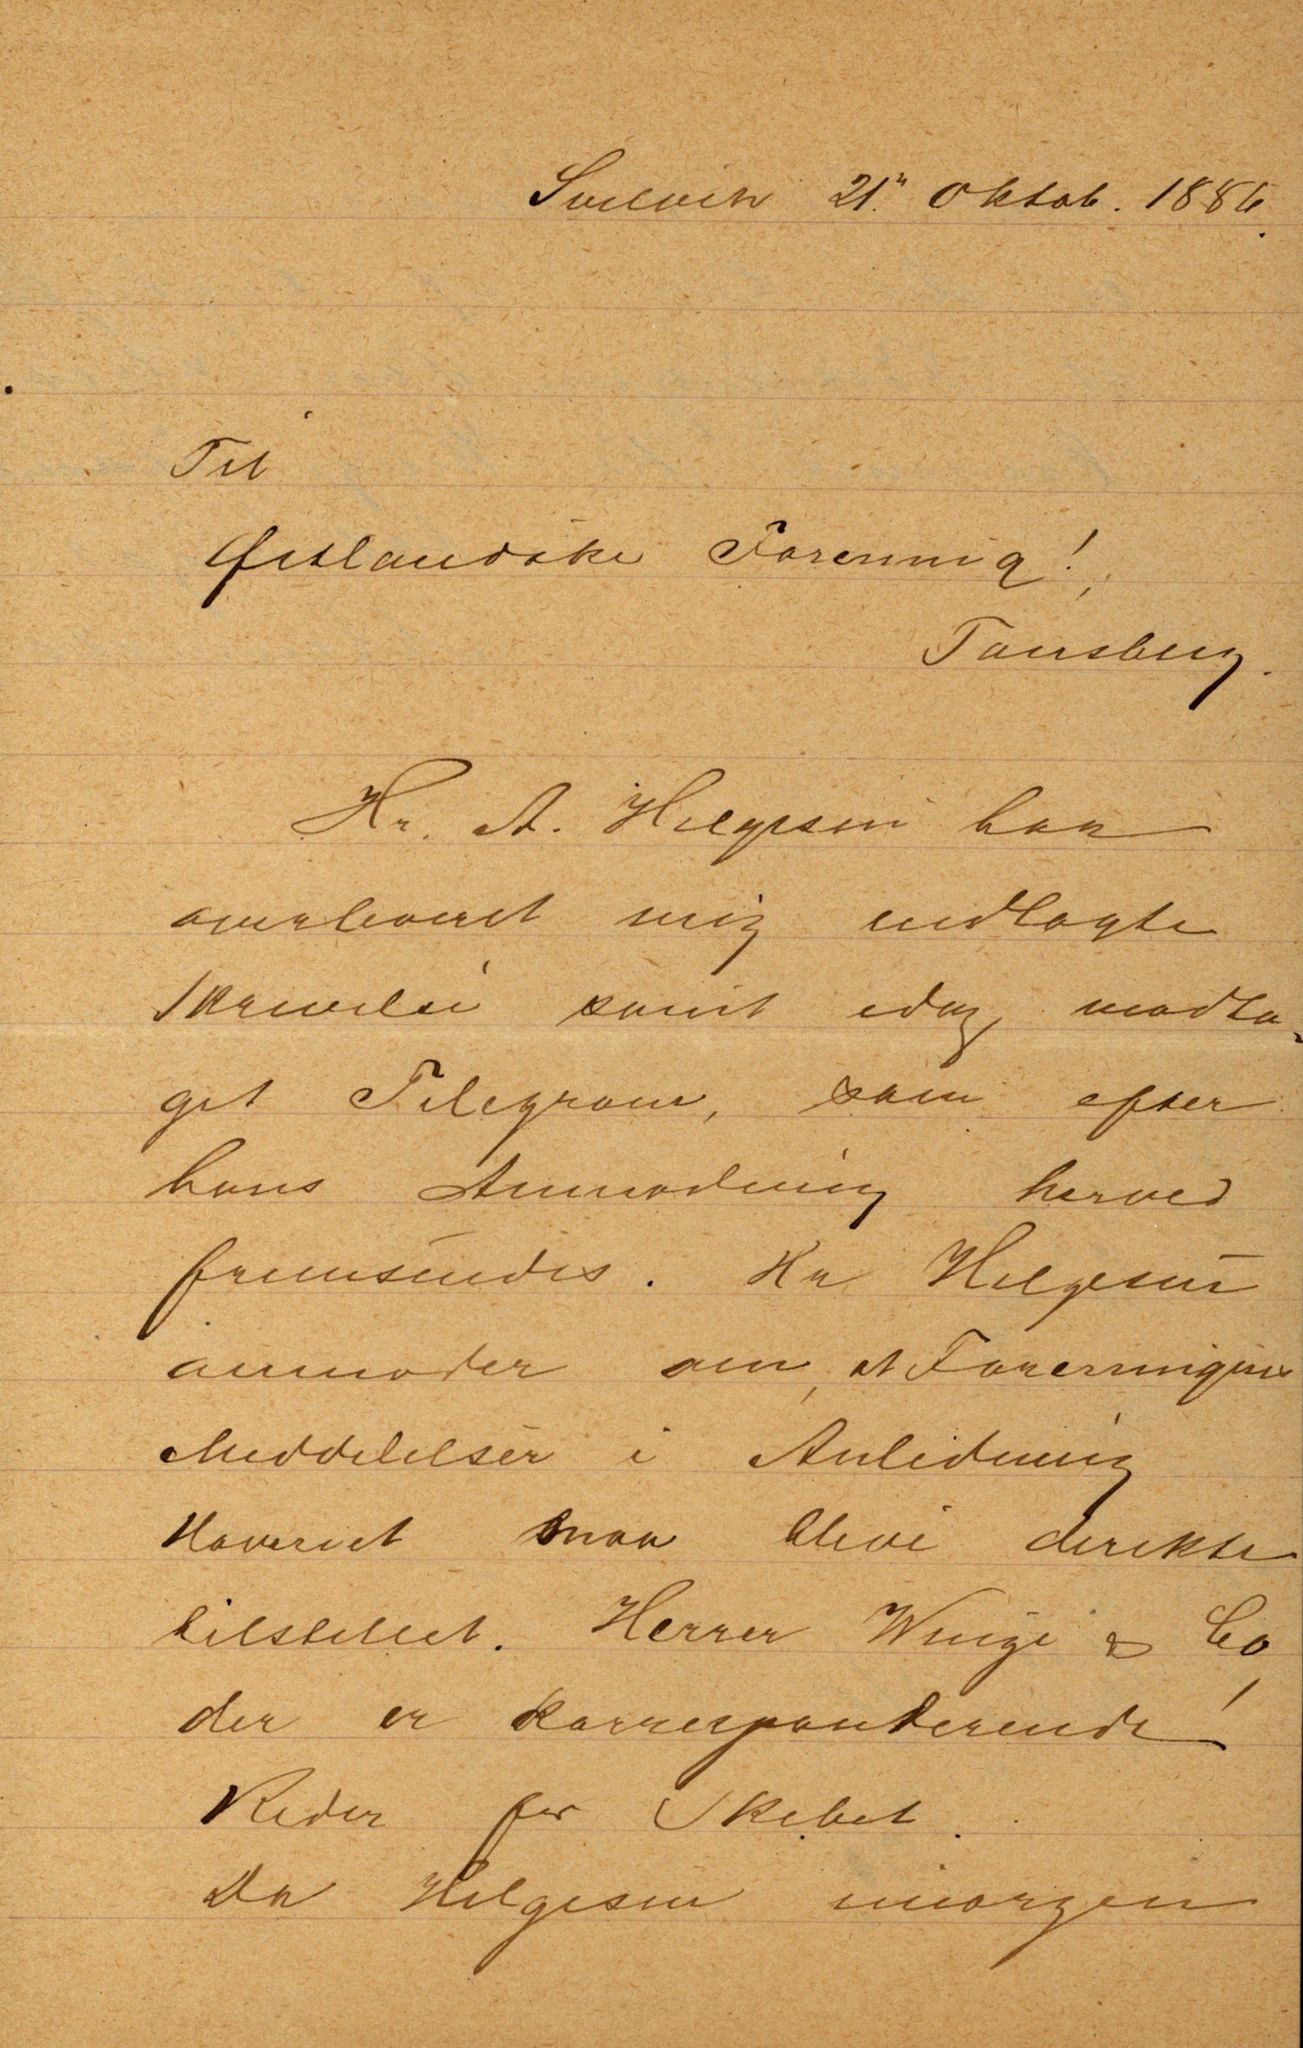 Svelvik 21de Oktob. 1886.
Til
Østlandske Forening!,
Tønsberg.
Hr. A. Helgesen har
overleveret mig indlagte
Skrivelse samt idag modta-
get Telegram, som efter
hans Anmodning herved
fremsendes. Hr Helgesen
anmoder om, at Foreningens
Meddelelser i Anledning
Havariet maa blive direkte
tilstillet. Herrer Winge & Co,
der er korresponderende
Reder for Skibet.
Da Helgesen imorgen